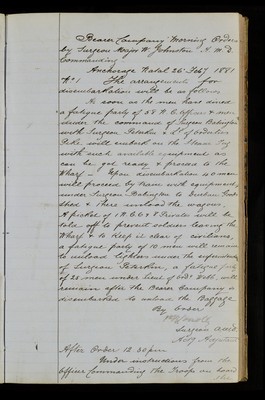 Bearer Company Morning Orders
by Surgeon Major W. Johnston A.M.D.
Commanding
Anchorage Natal 26 Feby 1881
No 1 The arrangements for
disembarkation will be as follows
As soon as the men have dined
a fatigue party of 58 N.C. Officers & men
under the command of Surgeon Babington
with Surgeon &
will embark on the Steam Tug
with such available equipment as
can be got ready & proceed to the
Wharf - Upon disembarkation 10 men
will proceed by train with equipment
under Surgeon Babington to Durban
Shed & there unload the wagons.
A picket of 1 N.C.O & Privates will be
told off to prevent soldiers leaving the
Wharf & to keep it clear of civilians,
a fatigue party of 10 men will remain
to unload lighters under the
of Surgeon a fatigue party
of 25 men under Lieut of will
remain after the Bearer Company is
disembarked to unload the Baggage
By order
Surgeon A.M.D.
Actg Adjutant
After Order 12.30 pm
Under instructions from the
Officer Commanding the Troops on board
the